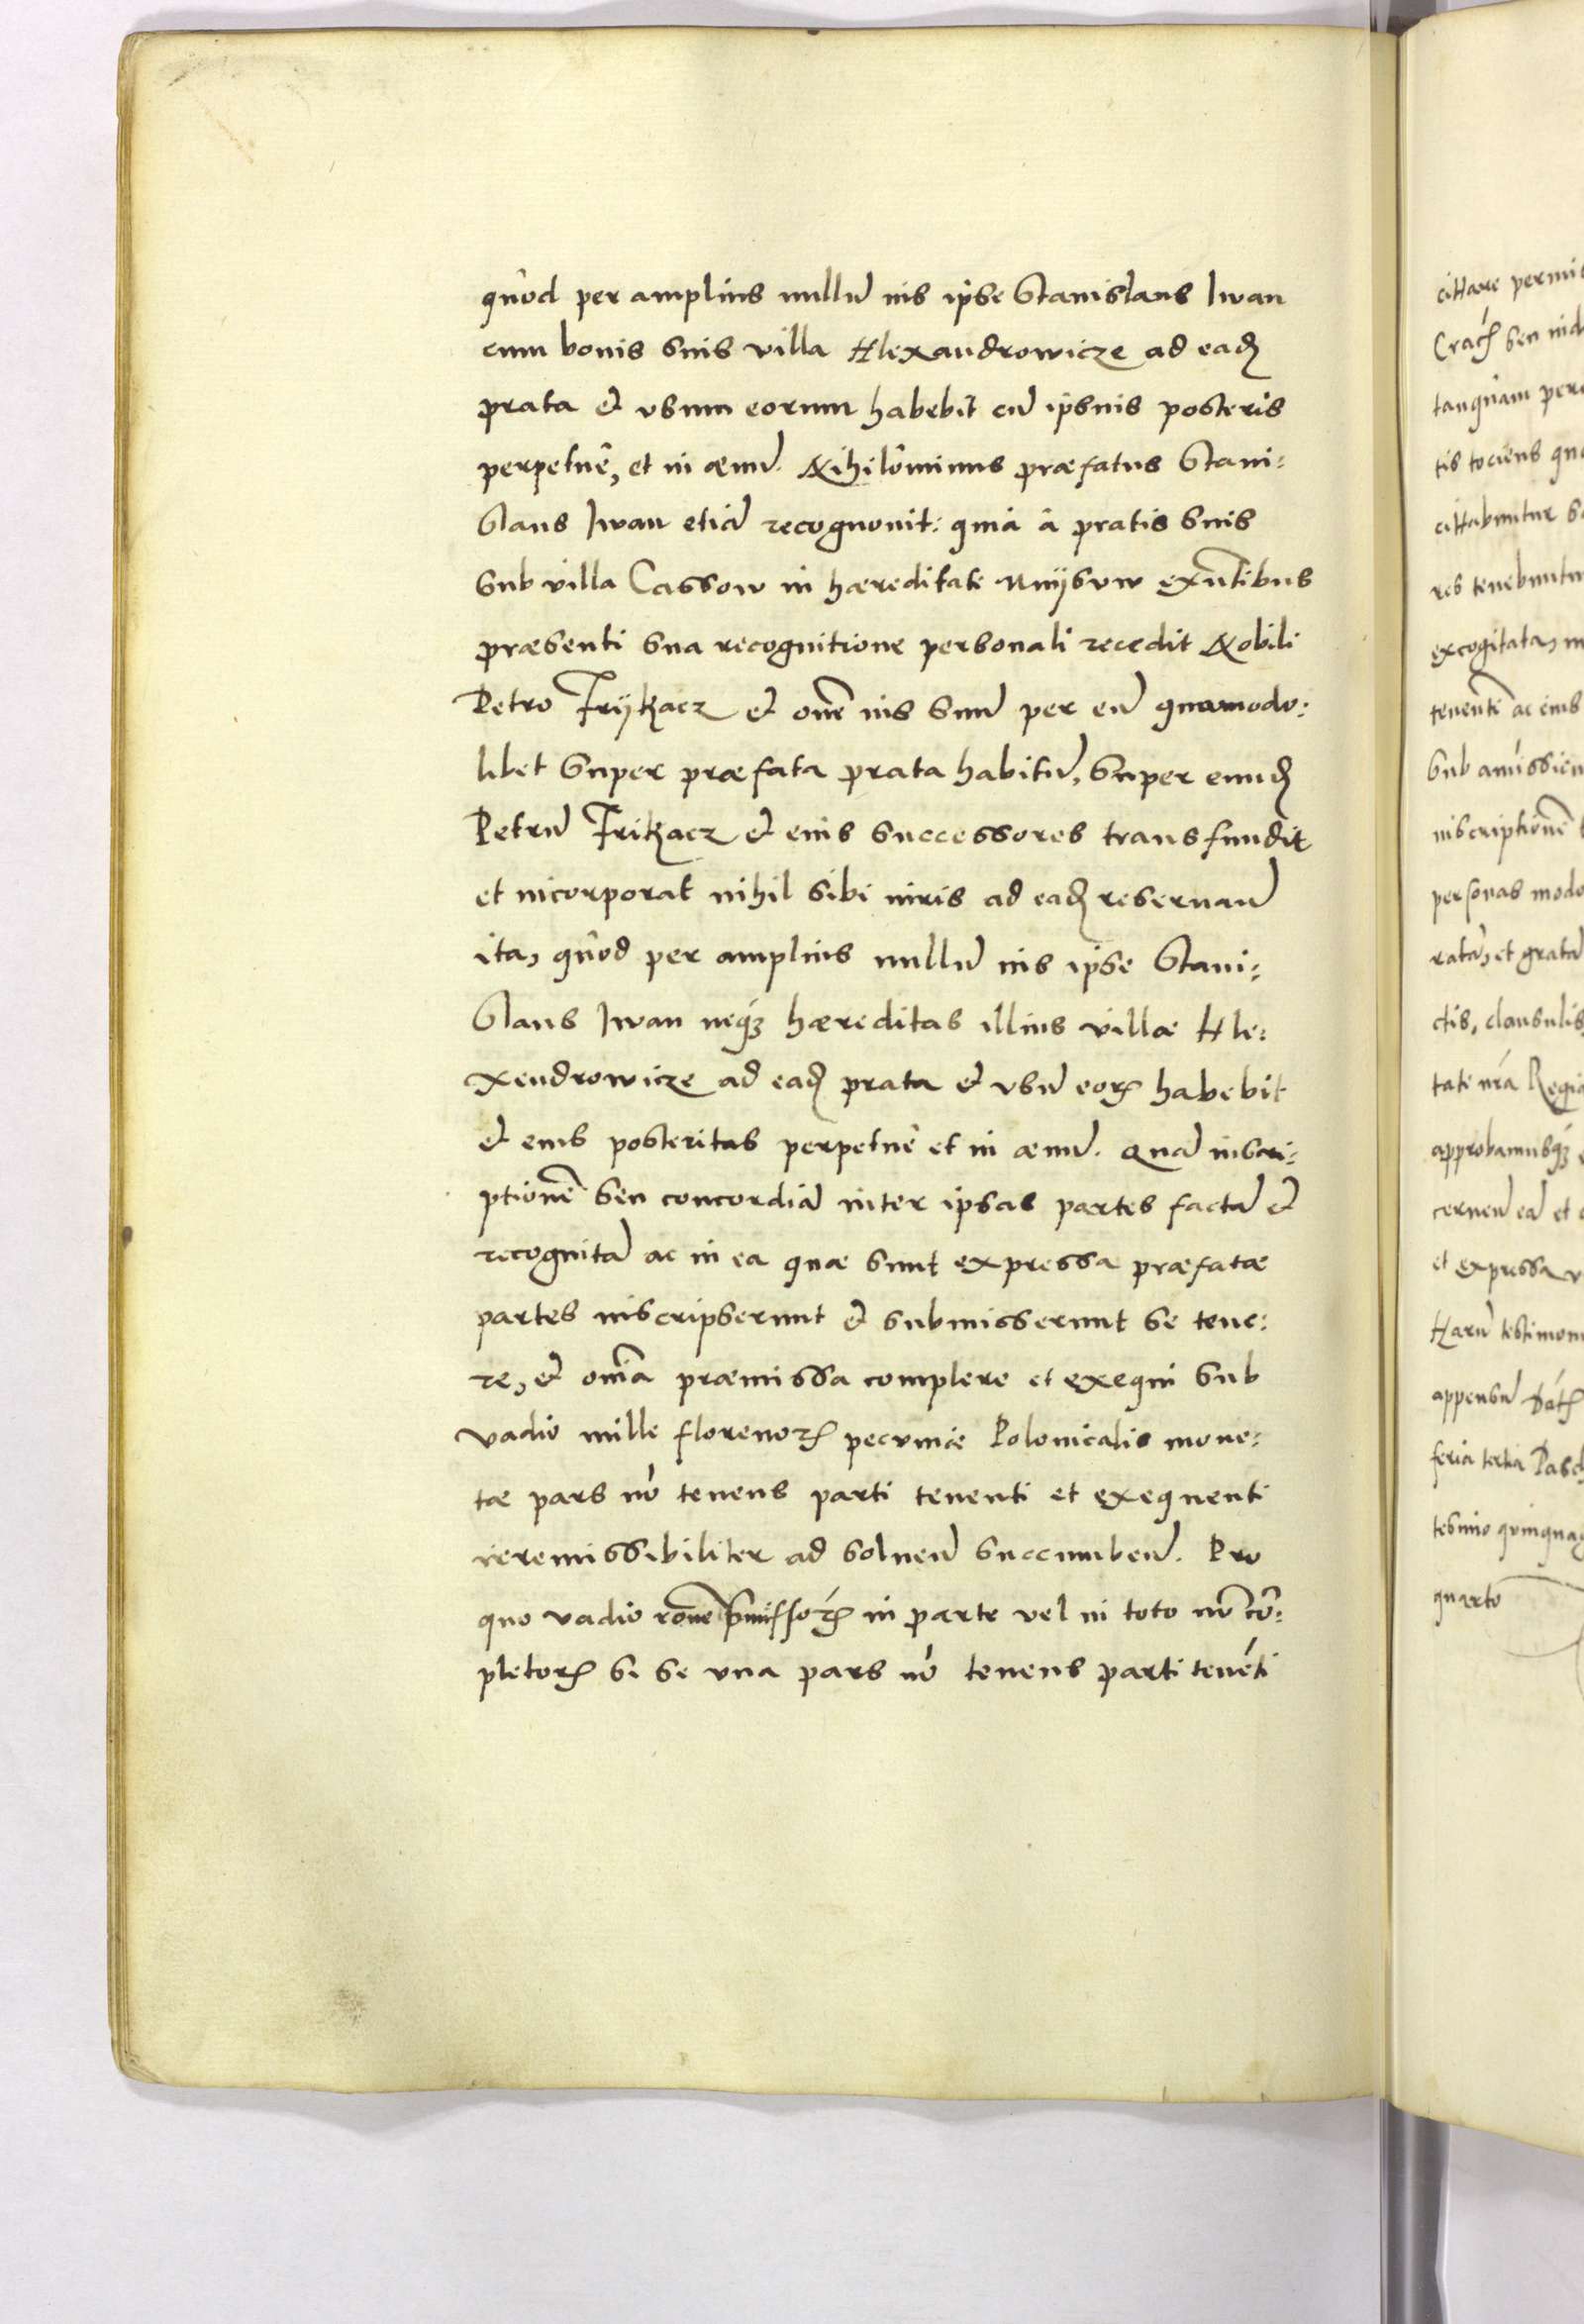 quòd per amplius nullū ius ipse Stanislaus Iwan
cum bonis suis villa Alexandrowicze ad eadȩ
prata et vsum eorum habebit cū ipsius posteris
perpetuè, et in æuū. Nihilominus præfatus Stani:
slaus Iwan etiā recognouit: quià à pratis suis
sub villa Cassow in hæreditate Nuysvw exn̄tibus
præsenti sua recognitione personali recedit Nobili
Petro Trÿkacz et omē ius suū per eū quamodo:
libet super præfata prata habitū, super eundȩ
Petrū Trikacz et eius successores transfundit
et incorporat nihil sibi iuris ad eadȩ reseruan̄
ita, quòd per amplius nullū ius ipse Stani:
slaus Iwan neq3 hæreditas illius villæ Ale:
xendrowicze ad eadȩ prata et vsū eorꝝ habebit
et eius posteritas perpetuè et in æuū. Quā inscri:
ptionē seu concordiā inter ipsas partes factā et
recognitā ac in ea quæ sunt expressa præfatæ
partes inscripserunt et submisserunt se tene:
re, et omīa præmissa complere et exequi sub
vadio mille florenorꝝ pecuniæ Polonicalis mone:
tæ pars nō tenens parti tenenti et exequenti
irremissibiliter ad soluen̄ succumben̄. Pro
quo vadio rōne p̄missorꝝ in parte vel in toto nō cō:
pletorꝝ si se vna pars nō tenens parti tenēti
cittare
Cracꝝ seu
tanquam
tis tociens
cittabuntur
res tenebuntur
excogitata,
tenenti ac eius
sub amussicu
inscriptionē
personas modo
ratā, et gratā
ctis, clausulis
tate nr̄a Regia
approbamusq3
cernen̄ eā et
et expressa
Harū testimon
appensū Datꝝ
feria tertia Pasc
tesimo quinquag
quarto